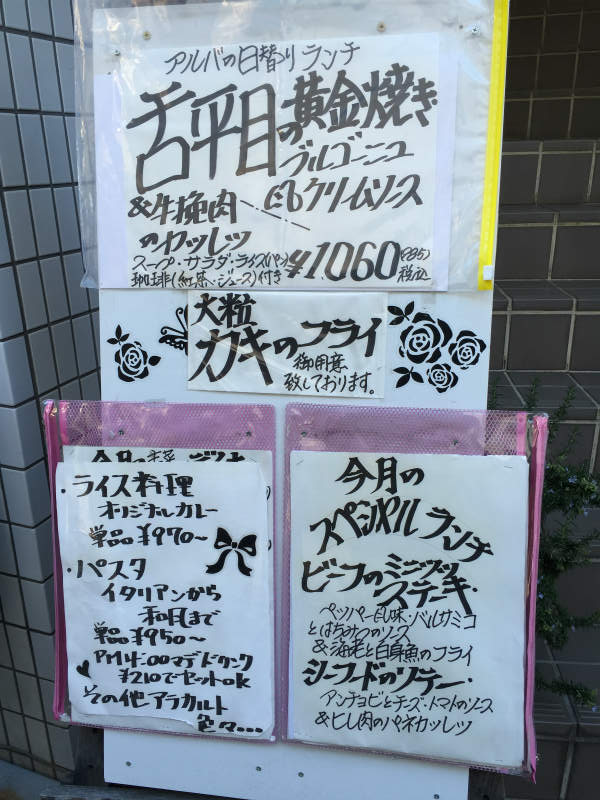 アルバの日替りランチ
舌平目の黄金焼き
ブルゴーニュ
風クリームソース
&牛挽肉
のカツレツ
スープ・サラダ・ライス(パン)
珈琲(紅茶・ジュース)付き
¥1060
税込
大粒
カキのフライ
御用意
致しております。
・ライス料理
オリジナルカレー
単品¥970〜
・パスタ
イタリアンから
和風まで
単品¥950〜
PM4:00マデドリンク
¥210でセットok
その他アラカルト
色々...
今月の
スペシャルランチ
ビーフのミニッツ
ステーキ・
ペッパー風味・バルサミコ
とはちみつのソース
&海老と白身魚のフライ
シーフードのソテー・
アンチョビとチーズ・トマトのソース
&ヒレ肉のパネカツレツ